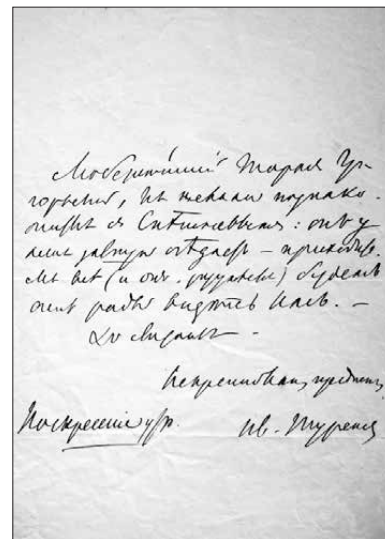 Любезнѣйшій Тарасъ Гри-
горьевичъ, Вы желали познако-
миться съ : онъ у
меня завтра обѣдаетъ – приходите.
Мы всѣ (и онъ) будемъ
очень рады видѣть Васъ. –
До свиданья –
преданный
Воскресенье утр.
Ив. Тургенев